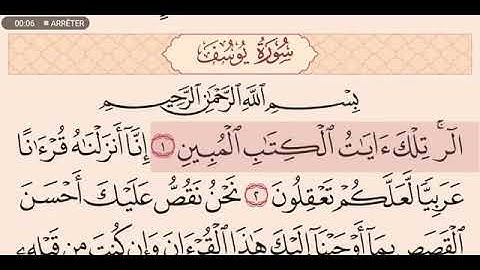 00:06 ■ ARRÊTER
سُورَةُ يُوسُفَ
بِسْمِ ٱللَّهِ ٱلرَّحْمَٰنِ ٱلرَّحِيمِ
الٓر ۚ تِلْكَ ءَايَٰتُ ٱلْكِتَٰبِ ٱلْمُبِينِ ١ إِنَّآ أَنزَلْنَٰهُ قُرْءَٰنًا
عَرَبِيًّا لَّعَلَّكُمْ تَعْقِلُونَ ٢ نَحْنُ نَقُصُّ عَلَيْكَ أَحْسَنَ
ٱلْقَصَصِ بِمَآ أَوْحَيْنَآ إِلَيْكَ هَٰذَا ٱلْقُرْءَانَ وَإِن كُنتَ مِن قَبْلِهِۦ